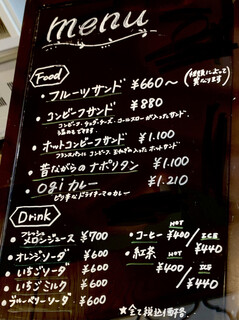 menu
Food
・フルーツサンド ¥660〜 (種類によって異なります)
・コンビーフサンド ¥880
コンビーフ、チェダーチーズ、コールスローが入ったサンド
・ホットコンビーフサンド ¥1.100
フランスパンに コンビーフ、 が入ったホットサンド
・昔ながらのナポリタン ¥1.100
・Ogiカレー ¥1.210
ピリ辛なドライキーマのカレー
Drink
フレッシュ
・メロンジュース ¥700
・オレンジソーダ ¥600
・いちごソーダ ¥600
・いちごミルク ¥600
・ブルーベリーソーダ ¥600
HOT ICE
・コーヒー ¥400/¥440
HOT ICE
・紅茶 ¥400/¥440
★全て税込価格